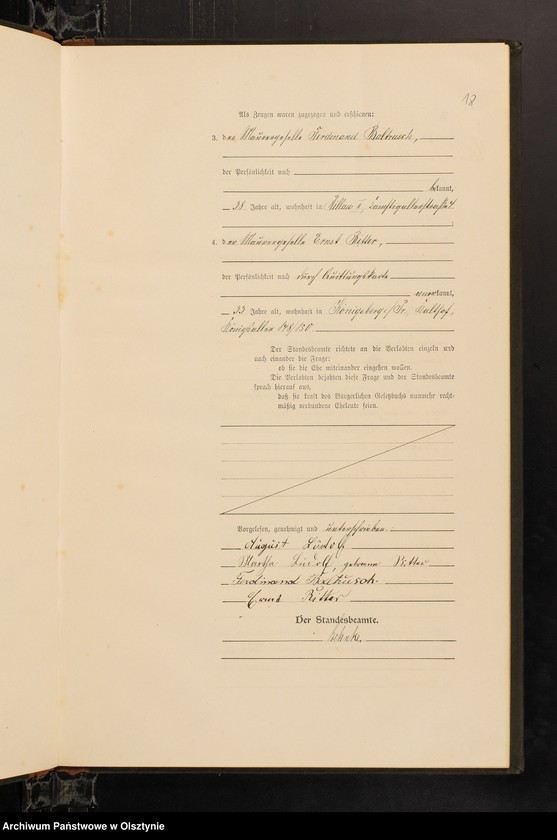 12
Als Zeugen waren zugezogen und erschienen:
3. der Maurergeselle Ferdinand Baltrusch,
der Persönlichkeit nach
bekannt,
38 Jahre alt, wohnhaft in
4. der Maurergeselle Ernst Ritter,
der Persönlichkeit nach durch Quittungskarte
anerkannt,
33 Jahre alt, wohnhaft in Königsberg i/Pr., Kalthof,
Königsallee 148/150
Der Standesbeamte richtete an die Verlobten einzeln und
nach einander die Frage:
ob sie die Ehe miteinander eingehen wollen.
Die Verlobten bejahten diese Frage und der Standesbeamte
sprach hierauf aus,
daß sie kraft des Bürgerlichen Gesetzbuchs nunmehr recht-
mäßig verbundene Eheleute seien.
Vorgelesen, genehmigt und unterschrieben:
August Ludolf
Martha Ludolf, geborene Ritter
Ferdinand Baltrusch.
Ernst Ritter
Der Standesbeamte.
Archiwum Państwowe w Olsztynie